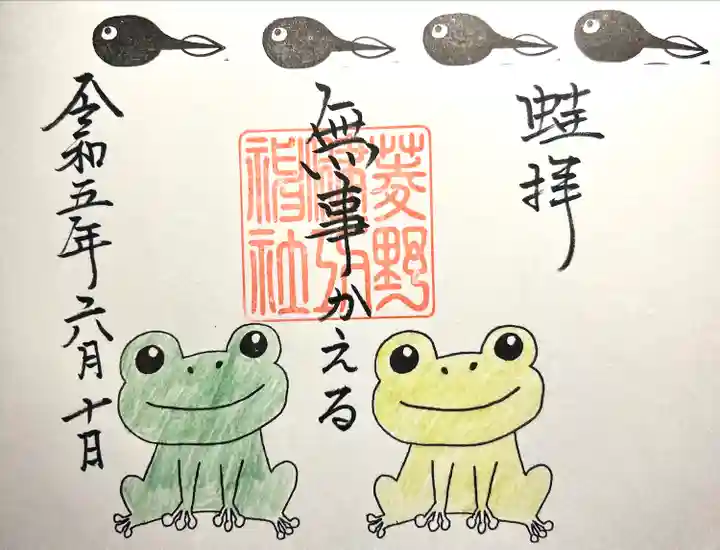 蛙拝
菱野
神社
無事かえる
令和五年六月十日